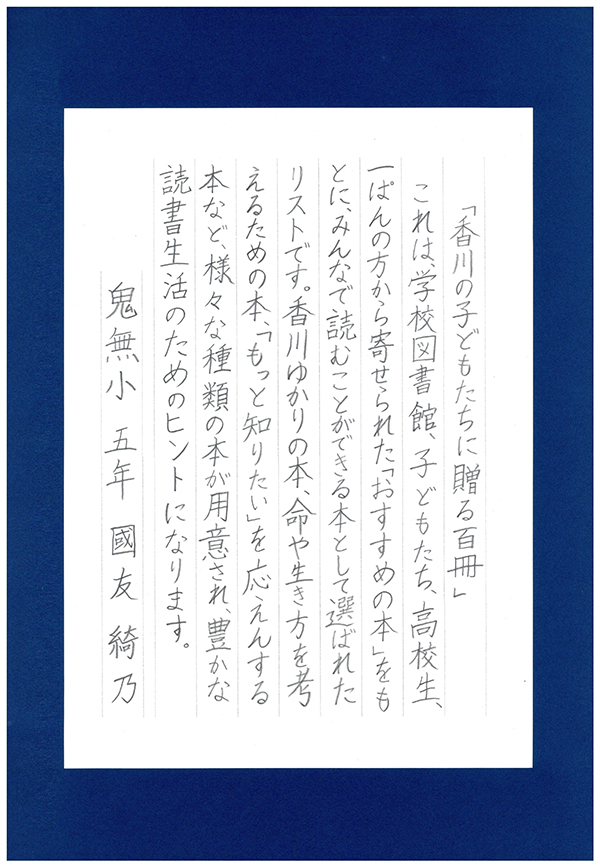 「香川の子どもたちに贈る百冊」
これは、学校図書館、子どもたち、高校生、
一ぱんの方から寄せられた「おすすめの本」をも
とに、みんなで読むことができる本として選ばれた
リストです。香川ゆかりの本、命や生き方を考
えるための本、「もっと知りたい」を応えんする
本など、様々な種類の本が用意され、豊かな
読書生活のためのヒントになります。
鬼無小 五年 國友 綺乃